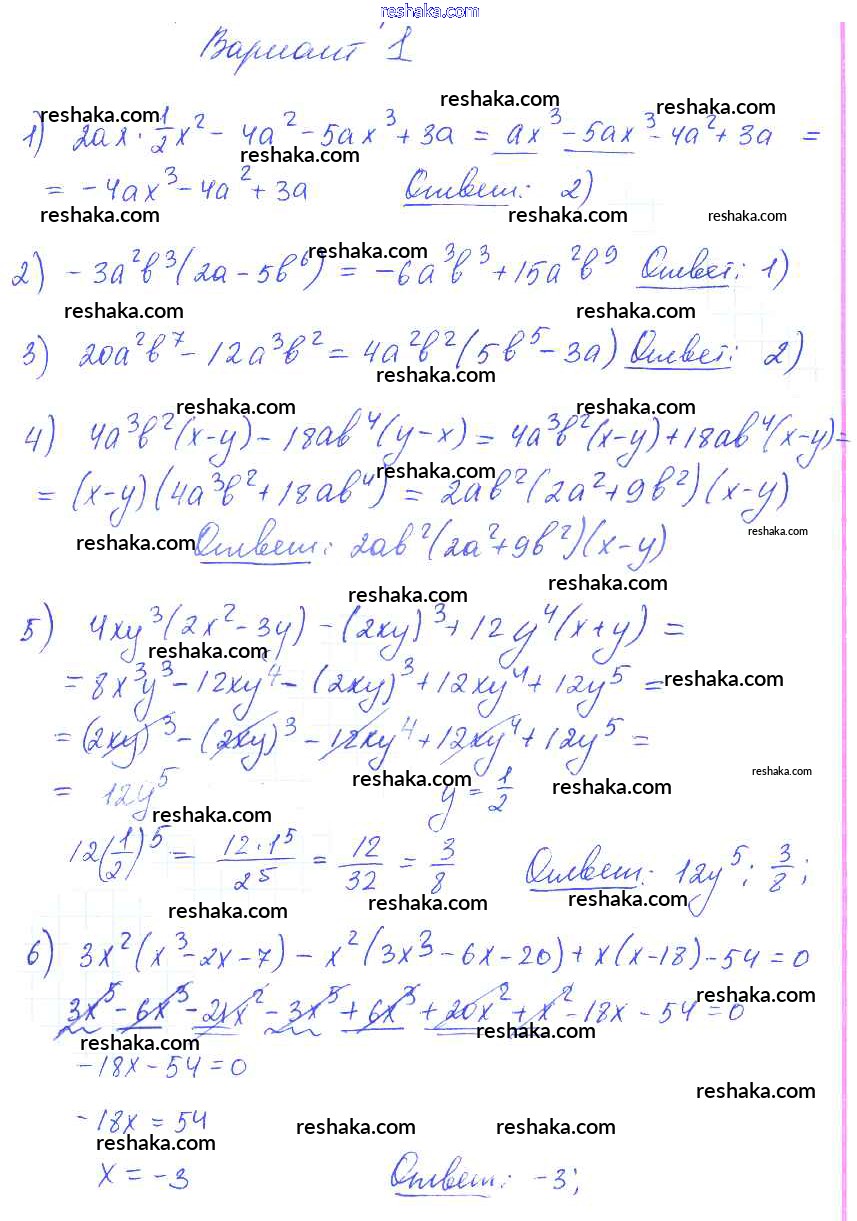 reshaka.com
Вариант 1
reshaka.com reshaka.com reshaka.com
1) 2ax · 1/2 x² - 4a² - 5ax³ + 3a = ax³ - 5ax³ - 4a² + 3a =
reshaka.com
= -4ax³ - 4a² + 3a Ответ: 2)
reshaka.com reshaka.com reshaka.com
reshaka.com
2) -3a²b³(2a - 5b⁶) = -6a³b³ + 15a²b⁹ Ответ: 1)
reshaka.com reshaka.com
3) 20a²b⁷ - 12a³b² = 4a²b²(5b⁵ - 3a) Ответ: 2)
reshaka.com
reshaka.com reshaka.com
4) 4a³b²(x-y) - 18ab⁴(y-x) = 4a³b²(x-y) + 18ab⁴(x-y) =
reshaka.com
= (x-y)(4a³b² + 18ab⁴) = 2ab²(2a² + 9b²)(x-y)
reshaka.com reshaka.com
Ответ: 2ab²(2a² + 9b²)(x-y)
reshaka.com reshaka.com
5) 4xy³(2x² - 3y) - (2xy)³ + 12y⁴(x+y) =
reshaka.com
= 8x³y³ - 12xy⁴ - (2xy)³ + 12xy⁴ + 12y⁵ =
reshaka.com
= (2xy)³ - (2xy)³ - 12xy⁴ + 12xy⁴ + 12y⁵ =
reshaka.com reshaka.com reshaka.com
= 12y⁵ y = 1/2
reshaka.com
12(1/2)⁵ = 12·1⁵/2⁵ = 12/32 = 3/8 Ответ: 12y⁵; 3/8;
reshaka.com reshaka.com reshaka.com
6) 3x²(x³ - 2x - 7) - x²(3x³ - 6x - 20) + x(x-18) - 54 = 0
reshaka.com
3x⁵ - 6x³ - 21x² - 3x⁵ + 6x³ + 20x² + x² - 18x - 54 = 0
reshaka.com reshaka.com
-18x - 54 = 0
reshaka.com
-18x = 54
reshaka.com reshaka.com reshaka.com
x = -3 Ответ: -3;